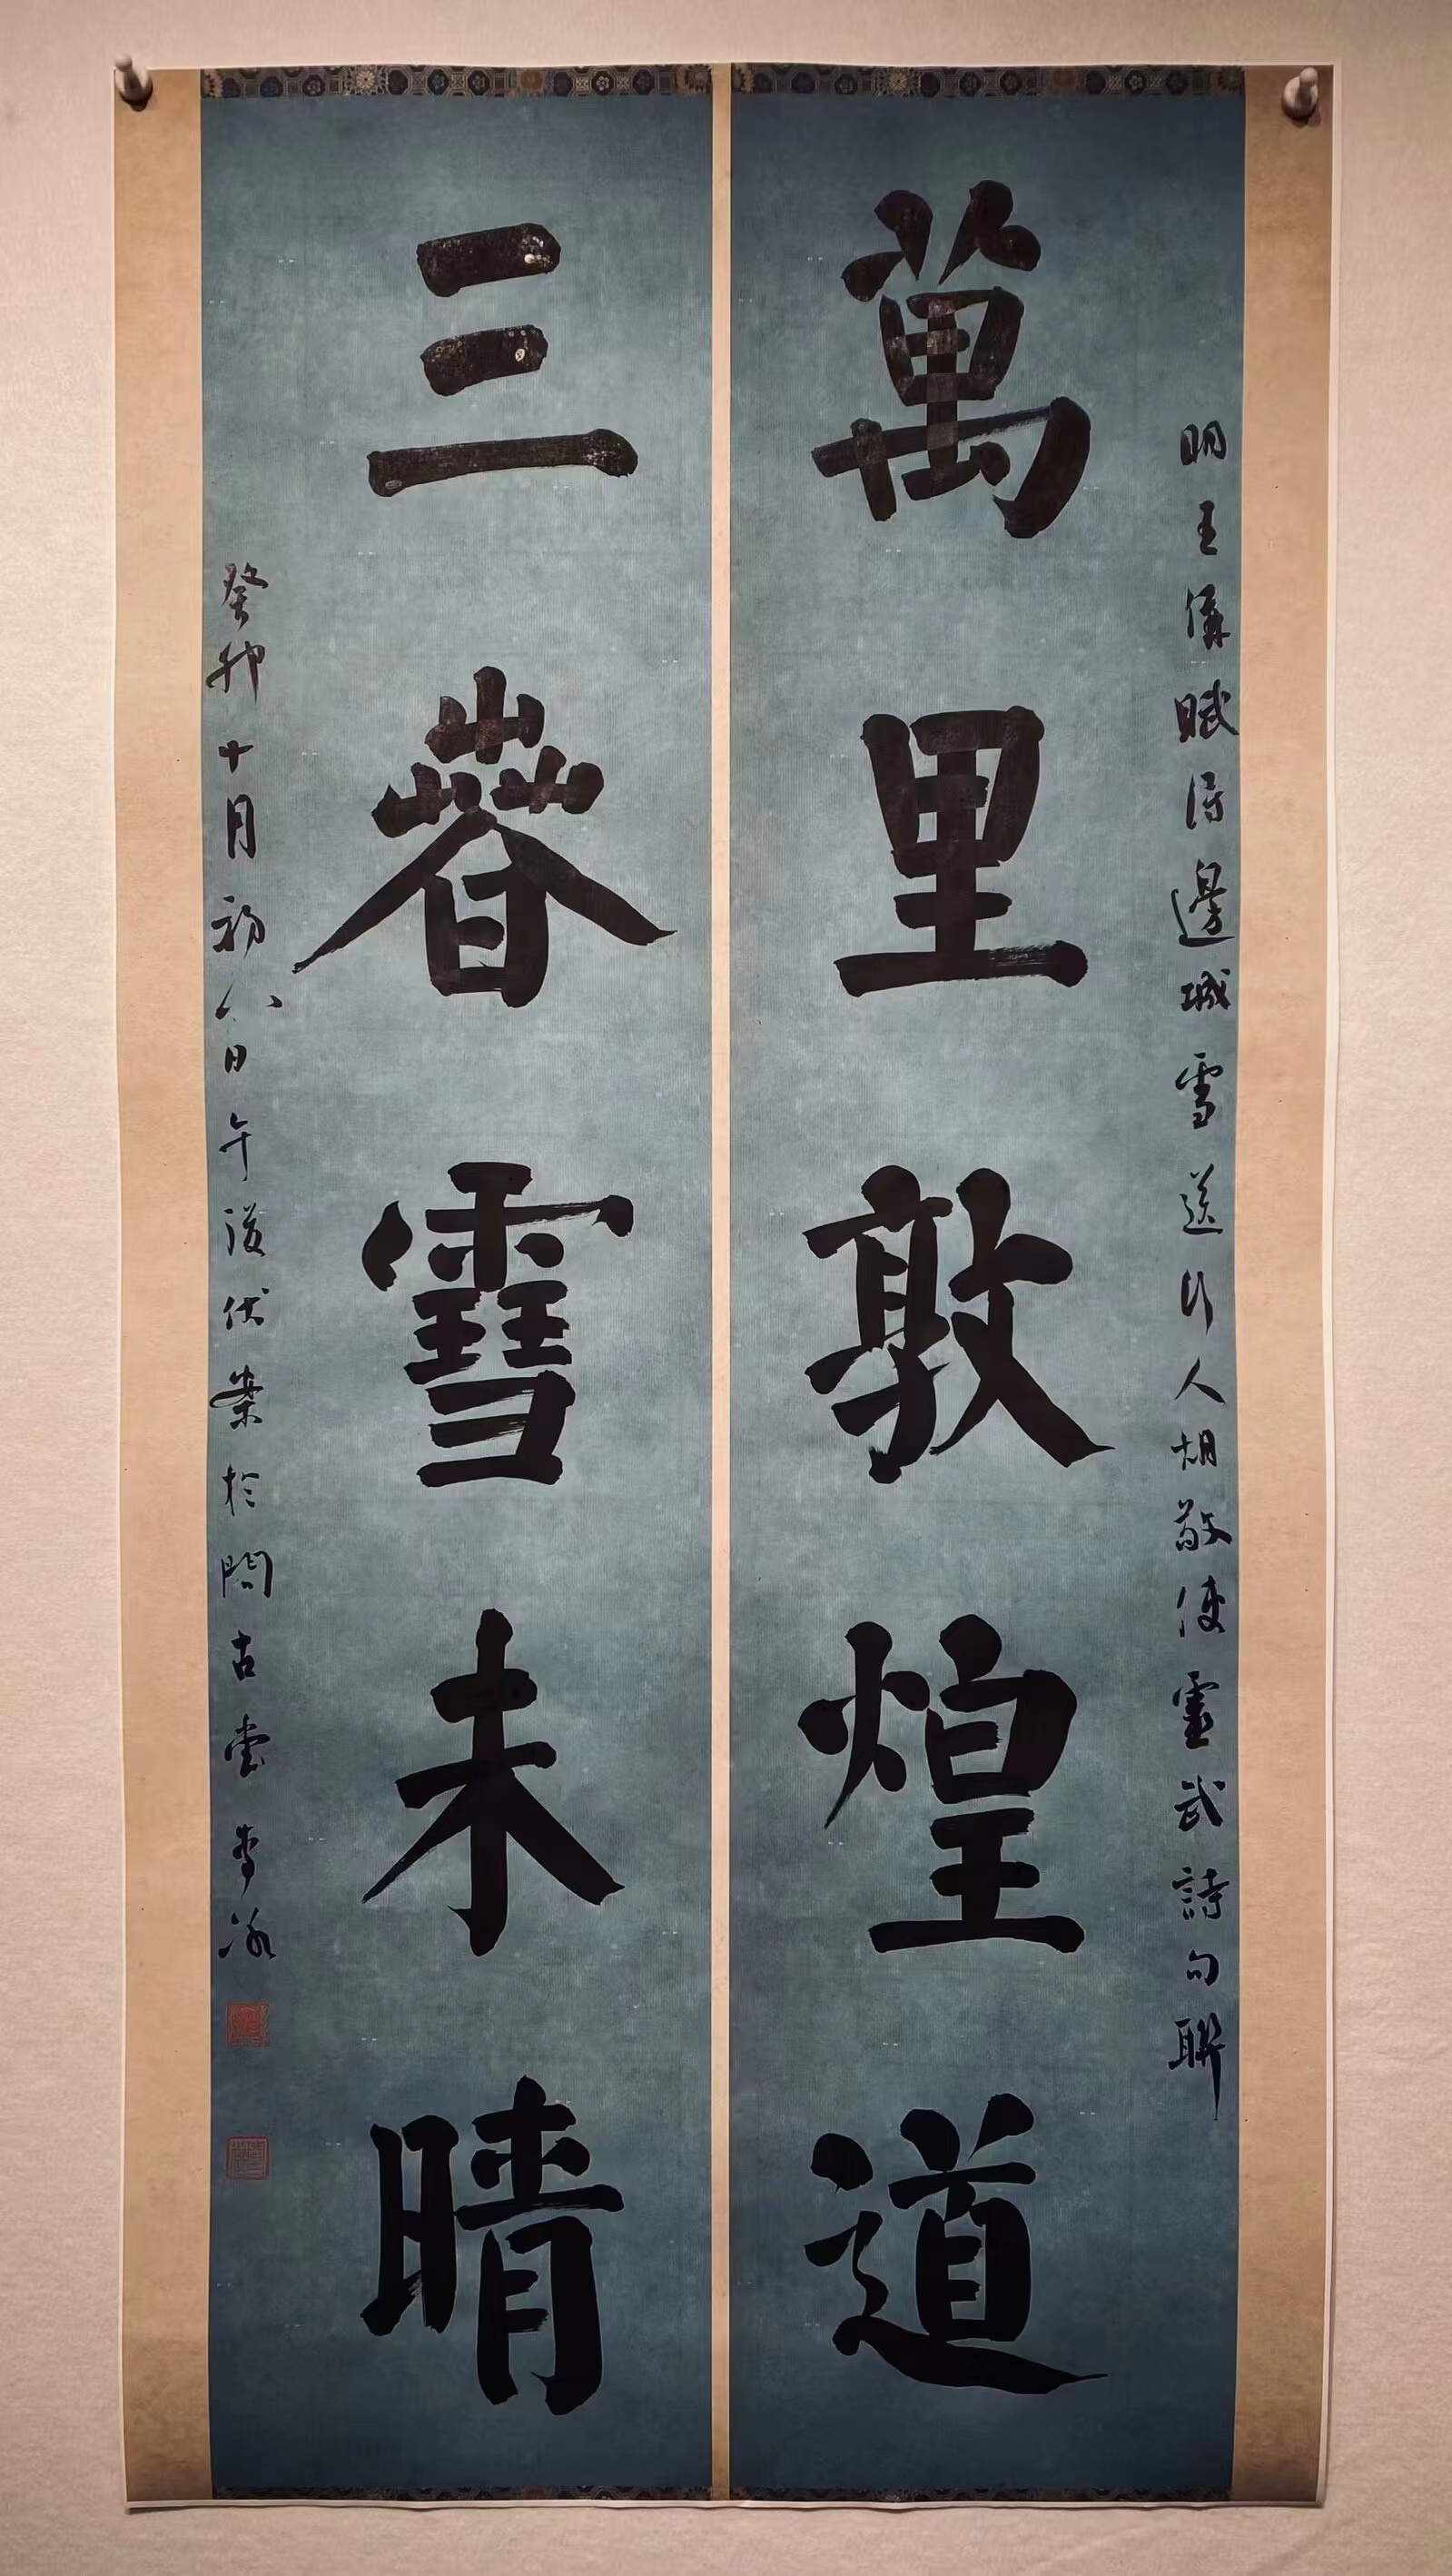 明王偁賦得邊城雪送行人胡敬使靈武詩句聯
萬里敦煌道
三春雪未晴
癸卯十月初八日午後伏案於問古堂李